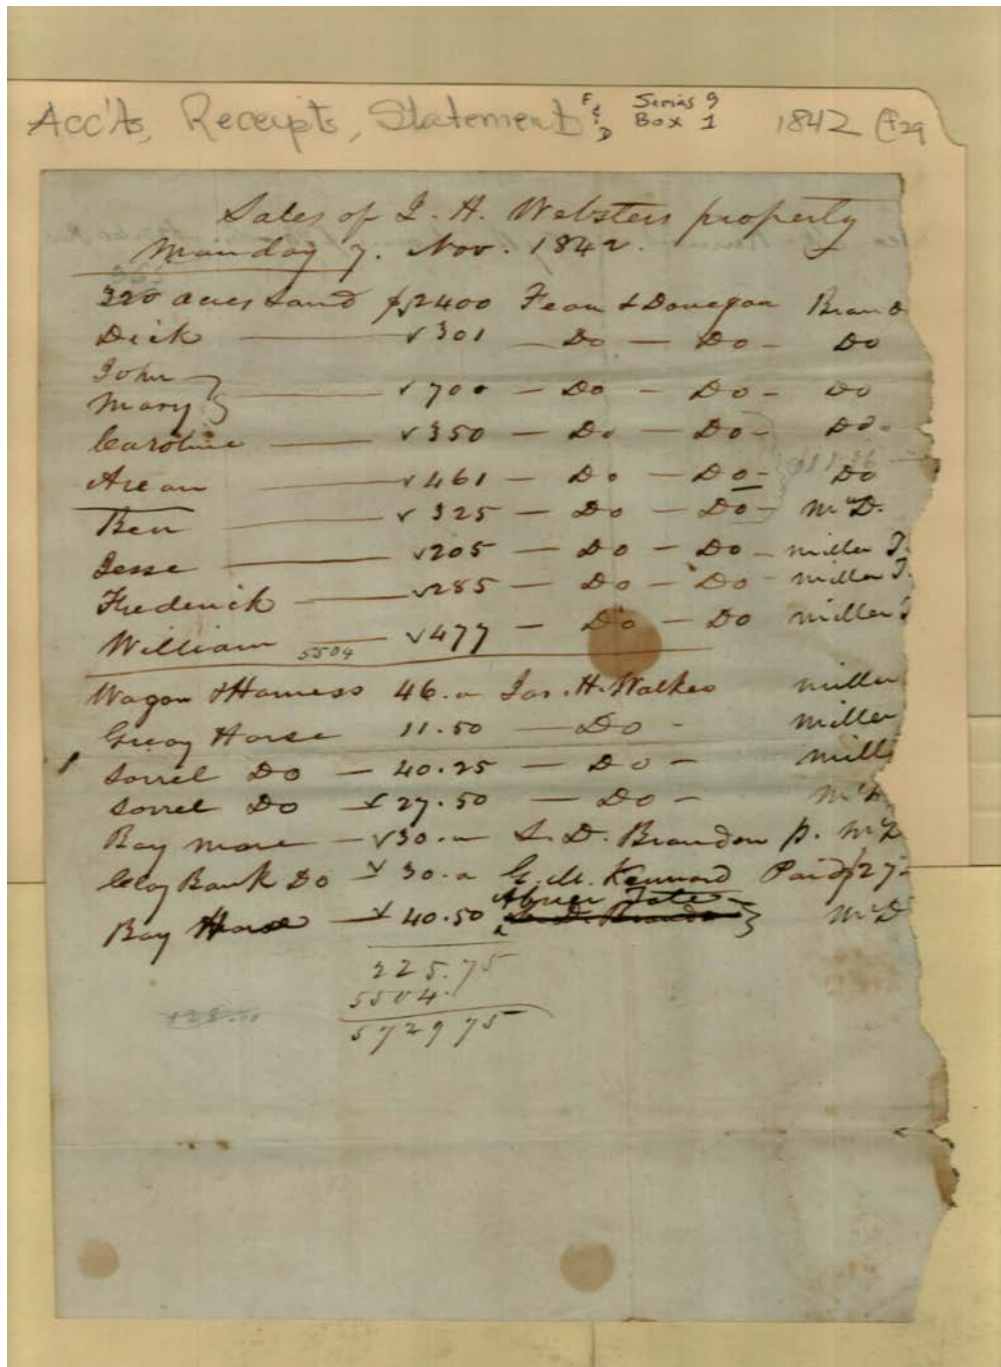 Acc'ts, Receipts, Statement F & D Series 9 Box 1 1842
Sales of J. H. Websters property
Monday 7. Nov. 1842.
320 acres Land $2400 Fearn & Donegan Brand
Dick 301 Do Do Do
John
Mary 700 Do Do Do
Caroline 350 Do Do Do
461 Do Do Do
Ben 325 Do Do McD.
Jesse 205 Do Do miller
Frederick 285 Do Do miller
William 5504 477 Do Do miller
Wagon & Harness 46. Jas. H. Walker miller
Greay Horse 11.50 Do miller
Sorrel Do 40.25 Do mill
Sorrel Do 27.50 Do McD
Bay mare 30. D. Brandon p. McD
Clay Bank Do 30. Kennard Paid 27
Abner Tate
Bay Horse 40.50 McD
225.75
5504.
5729 75